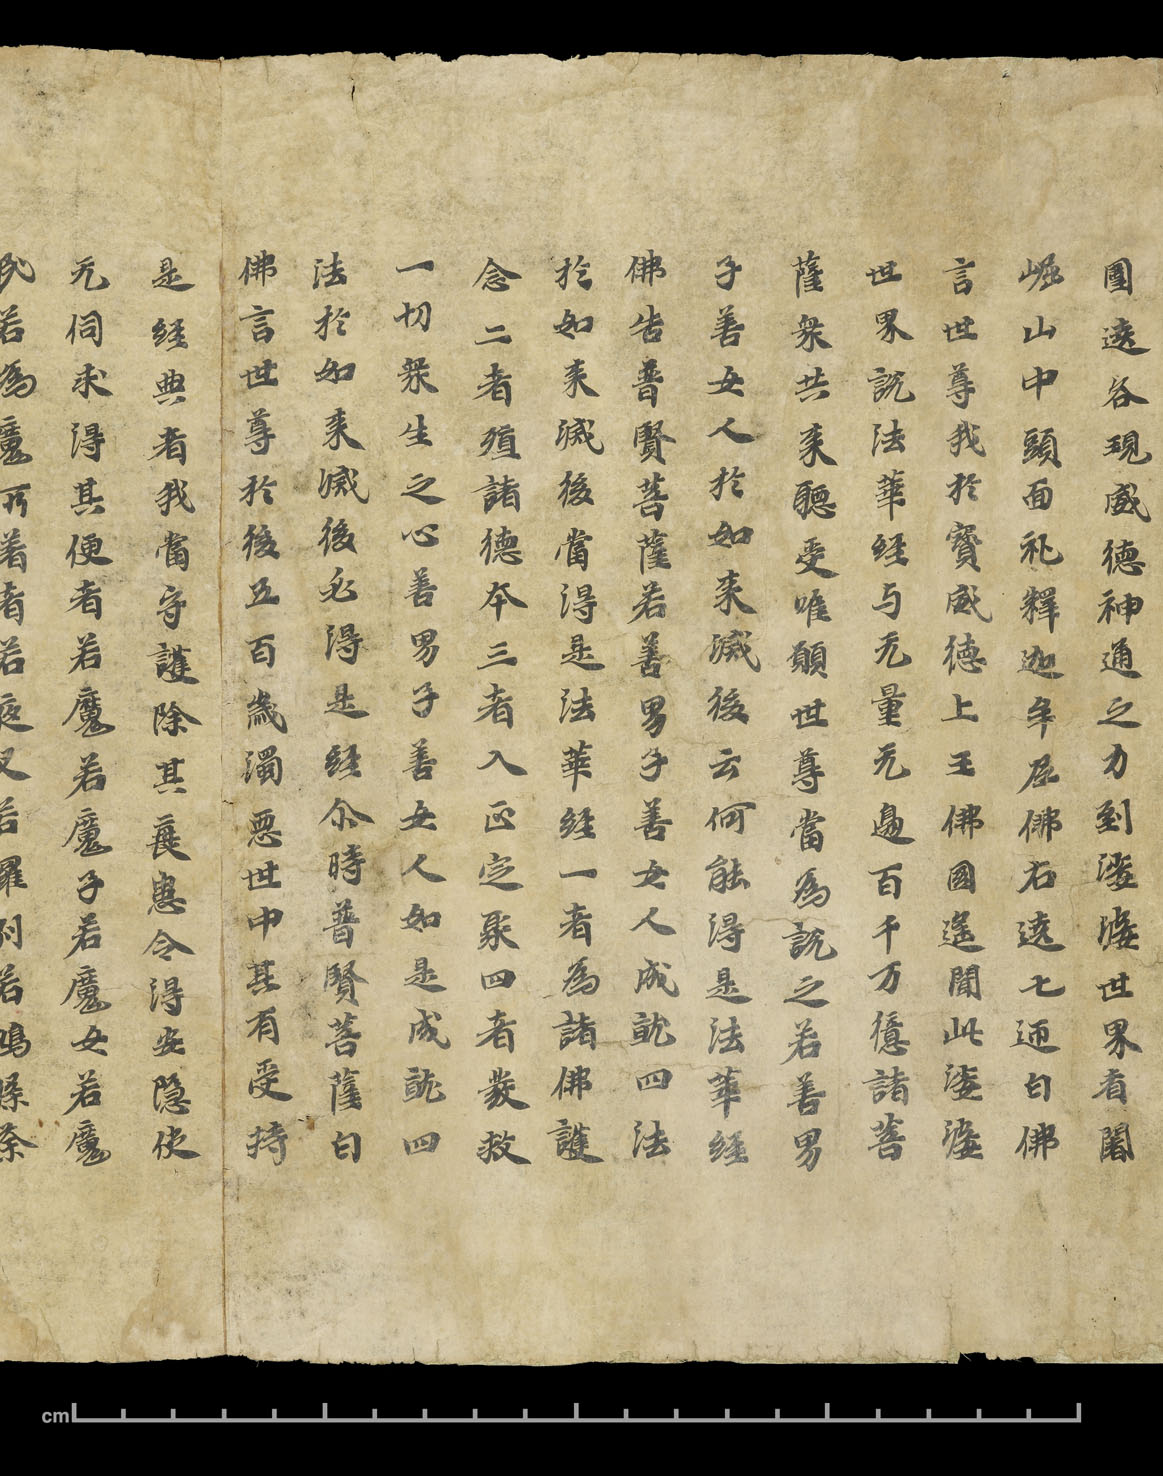 圍遶各現威德神通之力到娑婆世界耆闍
崛山中頭面礼釋迦牟尼佛右遶七迊白佛
言世尊我於寶威德上王佛國遥聞此娑婆
世界說法華經与无量无邊百千万億諸菩
薩衆共来聽受唯願世尊當為說之若善男
子善女人於如来滅後云何能得是法華經
佛告普賢菩薩若善男子善女人成就四法
於如来滅後當得是法華經一者為諸佛護
念二者殖諸德本三者入正定聚四者發救
一切衆生之心善男子善女人如是成就四
法於如来滅後必得是經尒時普賢菩薩白
佛言世尊於後五百歲濁惡世中其有受持
是經典者我當守護除其衰患令得安隱使
无伺求得其便者若魔若魔子若魔女若魔
民若為魔所著者若夜叉若羅刹若鳩槃荼